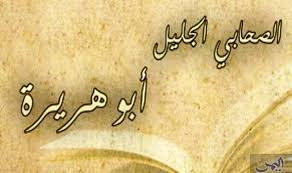 الصحابي الجليل
أبو هريرة
اليمن